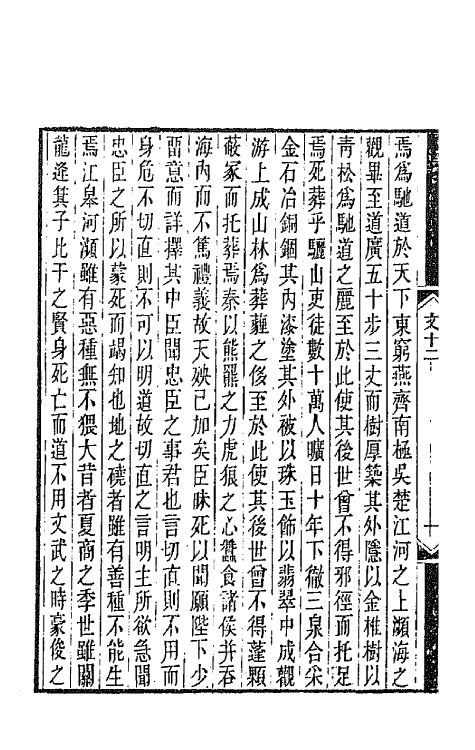 焉為馳道於天下東窮燕齊南極吳楚江河之上瀕海之
觀畢至道廣五十步三丈而樹厚築其外隱以金椎樹以
青松為馳道之麗至於此使其後世曾不得邪徑而托足
焉死葬乎驪山吏徒數十萬人曠日十年下徹三泉合采
金石冶銅錮其內漆塗其外被以珠玉飾以翡翠中成觀
游上成山林為葬薶之後至於此使其後世曾不得蓬顆
蔽冢而托葬焉秦以熊羆之力虎狼之心蠶食諸侯并吞
海內而不篤禮義故天殃已加矣臣昧死以聞願陛下少
畱意而詳擇其中臣聞忠臣之事君也言切直則不用而
身危不切直則不可以明道故切直之言明主所欲急聞
忠臣之所以蒙死而竭知也地之磽者雖有善種不能生
焉江皋河瀕雖有惡種無不猥大昔者夏商之季世雖關
龍逄箕子比干之賢身死亡而道不用文武之時豪俊之
文十二
十